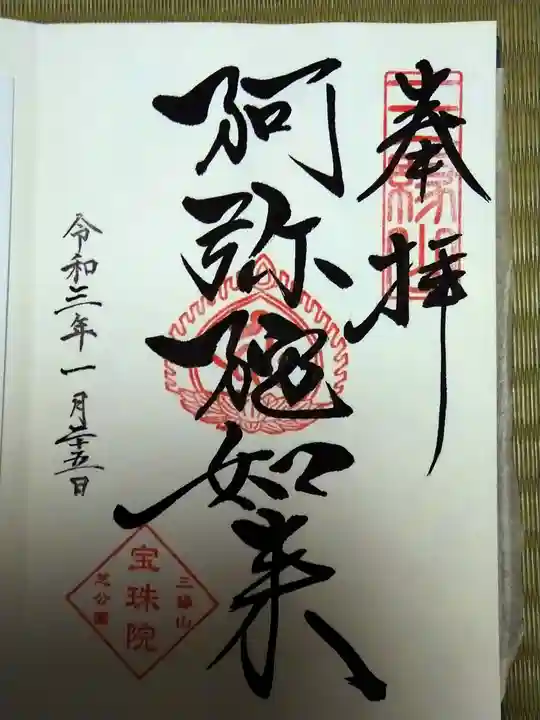 奉拝
三縁山
阿弥陀如来
令和三年一月廿五日
三縁山
宝珠院
芝公園